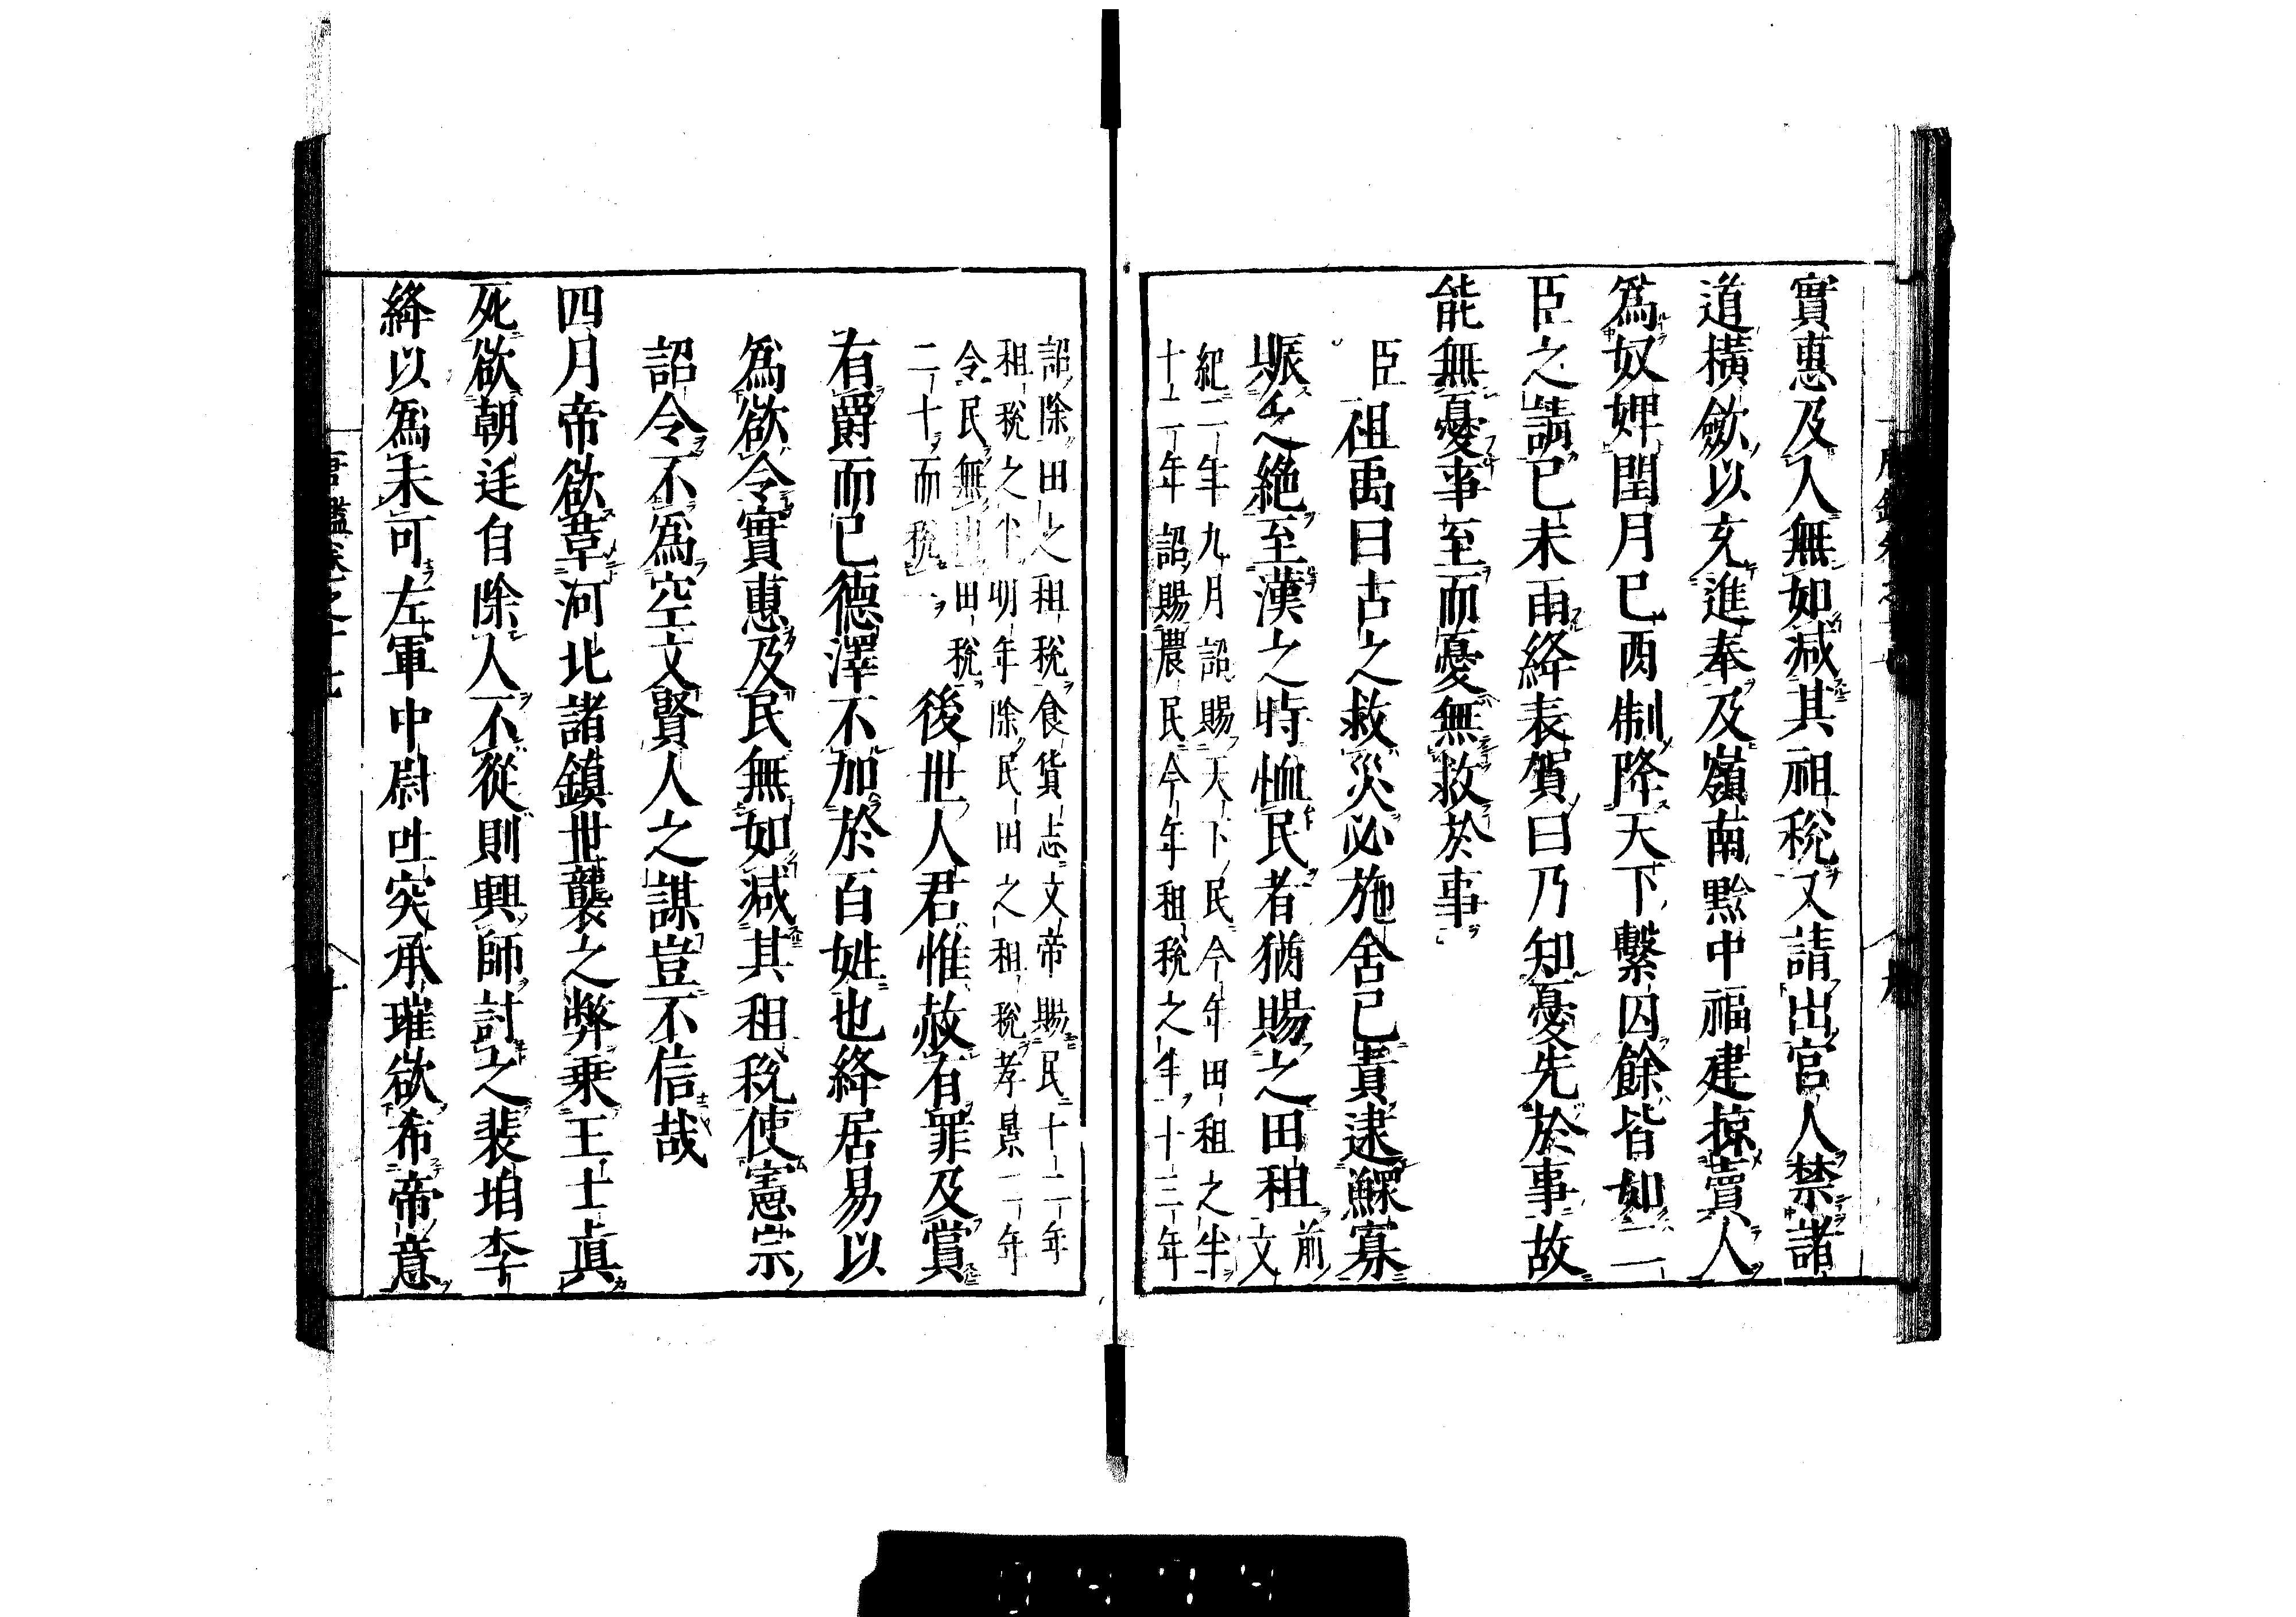 實惠及人無如減其祖稅又請出宮人禁諸
道橫歛以充進奉及嶺南黔中福建掠賣人
爲奴婢閏月巳酉制降天下繫囚餘皆如二
臣之請已未雨絳表賀曰乃知憂先於事故
能無憂事至而憂無救於事
臣祖禹曰古之救災必施舍已責逮鰥寡
賑乏絶至漢之時恤民者猶賜之田租前文
紀二年九月詔賜天下民今年田租之半
十二年詔賜農民今年租稅之半十三年
詔除田之租稅食貨志文帝賜民十二年
租稅之半明年除民田之租稅孝景二年
令民無出田稅
二十而稅一 後世人君惟赦有罪及賞
有爵而已德澤不加於百姓也絳居易以
爲欲令實惠及民無如減其租稅使憲宗
詔令不爲空文賢人之謀豈不信哉
四月帝欲革河北諸鎮世襲之弊乗王士眞
死欲朝廷自除人不從則興師討之裴垍李
絳以爲未可左軍中尉吐突承璀欲希帝意
唐鑑卷之十七